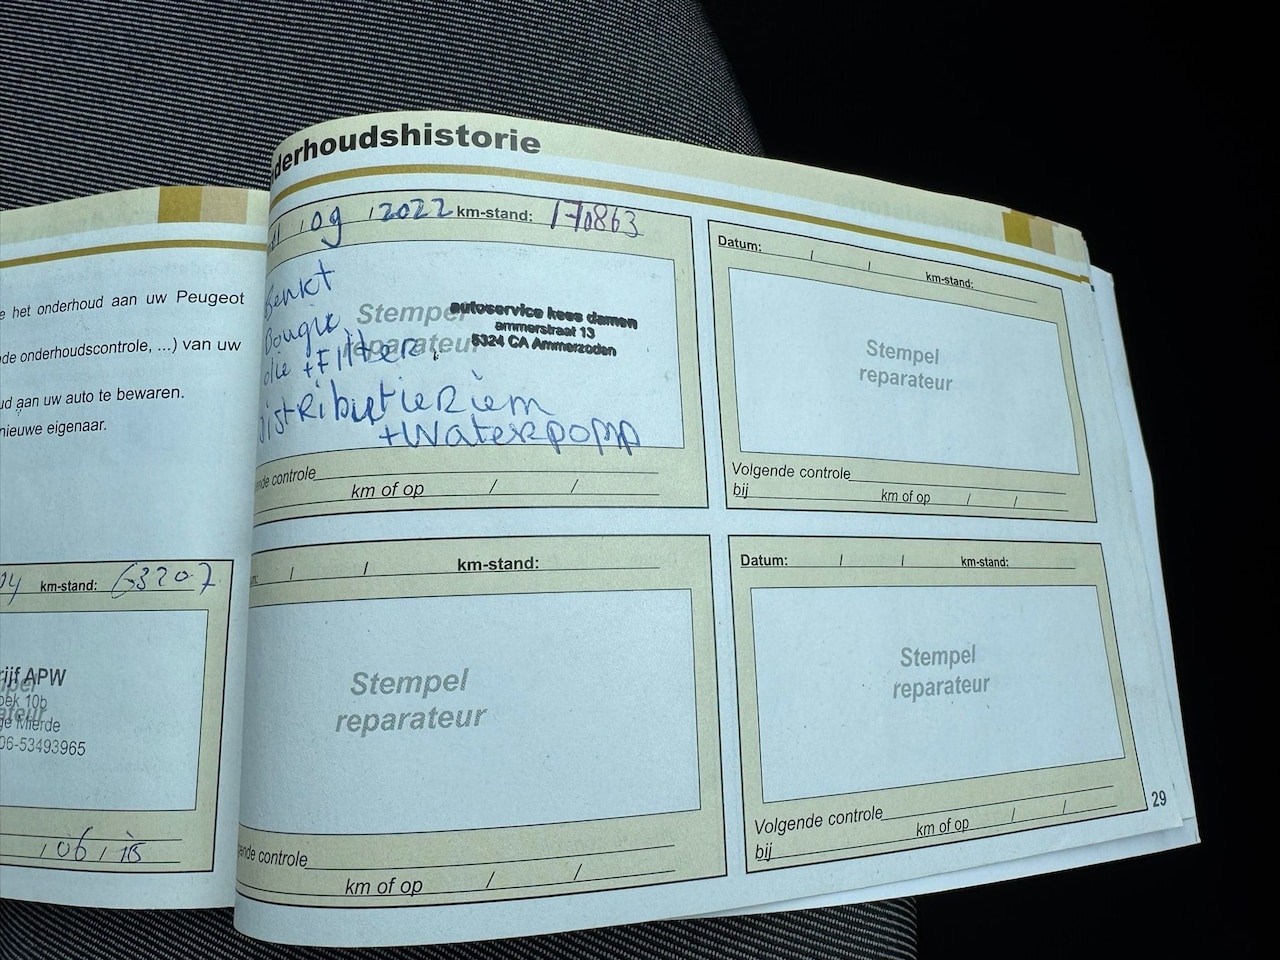 e het onderhoud aan uw Peugeot
de onderhoudscontrole, ...) van uw
ud aan uw auto te bewaren.
nieuwe eigenaar.
04 km-stand: 63207
rijf APW
oek 10b
je Mierde
06-53493965
/ 06 / 15
derhoudshistorie
/ 09 / 2022 km-stand: 170863
Stempel
reparateur
autoservice kees damen
ammerstraat 13
5324 CA Ammerzoden
Bougie
olie + Filter.
Distributieriem
+ Waterpomp
ende controle
km of op / /
Datum: / / km-stand:
Stempel
reparateur
Volgende controle
bij km of op / /
/ / km-stand:
Stempel
reparateur
ende controle
km of op / /
Datum: / / km-stand:
Stempel
reparateur
Volgende controle
bij km of op / /
29